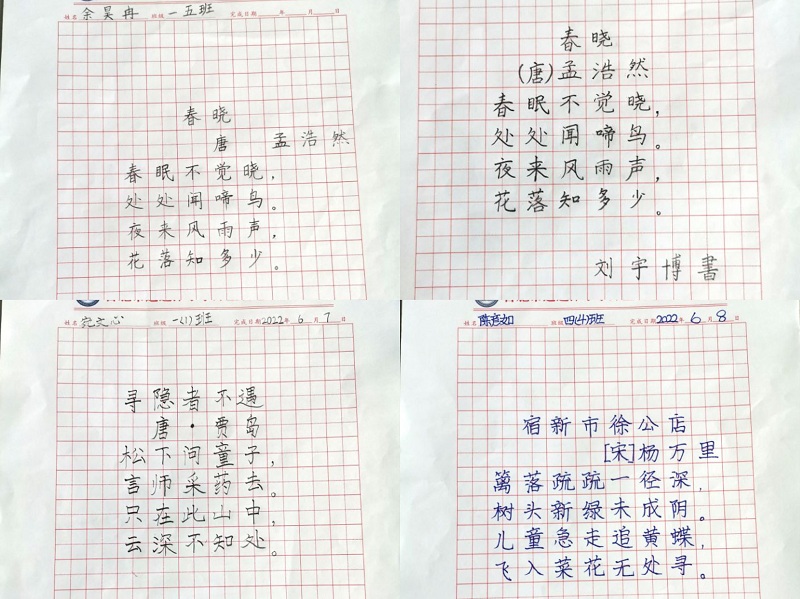 姓名 余昊冉 班级 一五班 完成日期 年 月 日
春晓
唐 孟浩然
春眠不觉晓，
处处闻啼鸟。
夜来风雨声，
花落知多少。
春晓
(唐)孟浩然
春眠不觉晓，
处处闻啼鸟。
夜来风雨声，
花落知多少。
刘宇博書
姓名 文心 班级 一(1)班 完成日期2022年6月7日
寻隐者不遇
唐·贾岛
松下问童子，
言师采药去。
只在此山中，
云深不知处。
姓名 陈彦如 班级 四(4)班 完成日期2022年6月8日
宿新市徐公店
[宋]杨万里
篱落疏疏一径深，
树头新绿未成阴。
儿童急走追黄蝶，
飞入菜花无处寻。